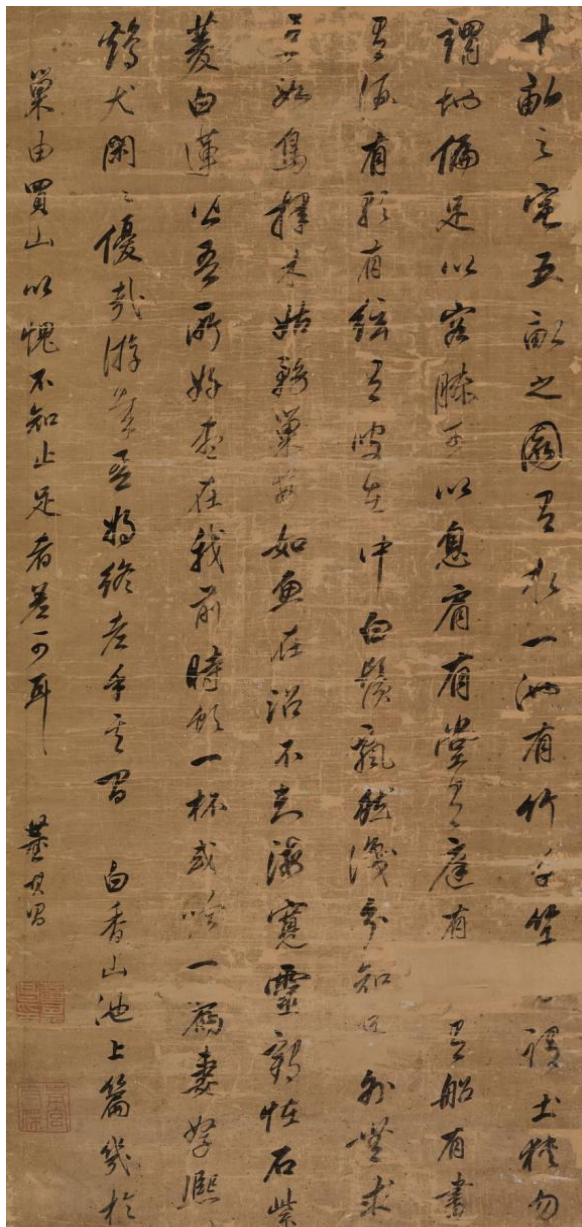 十畝之宅五畝之園有水一池有竹千竿謂土狹勿
謂地偏足以容膝足以息肩有堂有庭有有船有書
有酒有歌有絃有叟在中白鬚飄然識分知足外無求
焉如鳥擇木姑務巢安如魚在沼不知海寬靈鶴怪石紫
菱白蓮皆吾所好盡在我前時飲一杯或吟一篇妻孥熙
鷄犬閑〻優哉游哉吾將終老乎其間 白香山池上篇幾於
巢由買山以愧不知止足者差可耳 董其昌